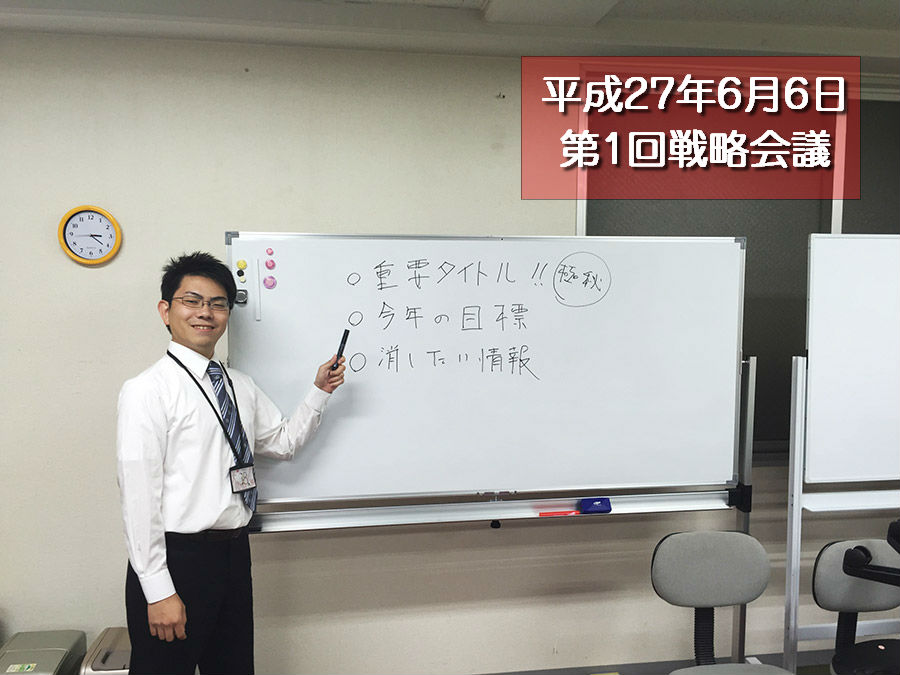 平成27年6月6日
第1回戦略会議
○重要タイトル!! 極秘
○今年の目標
○消したい情報